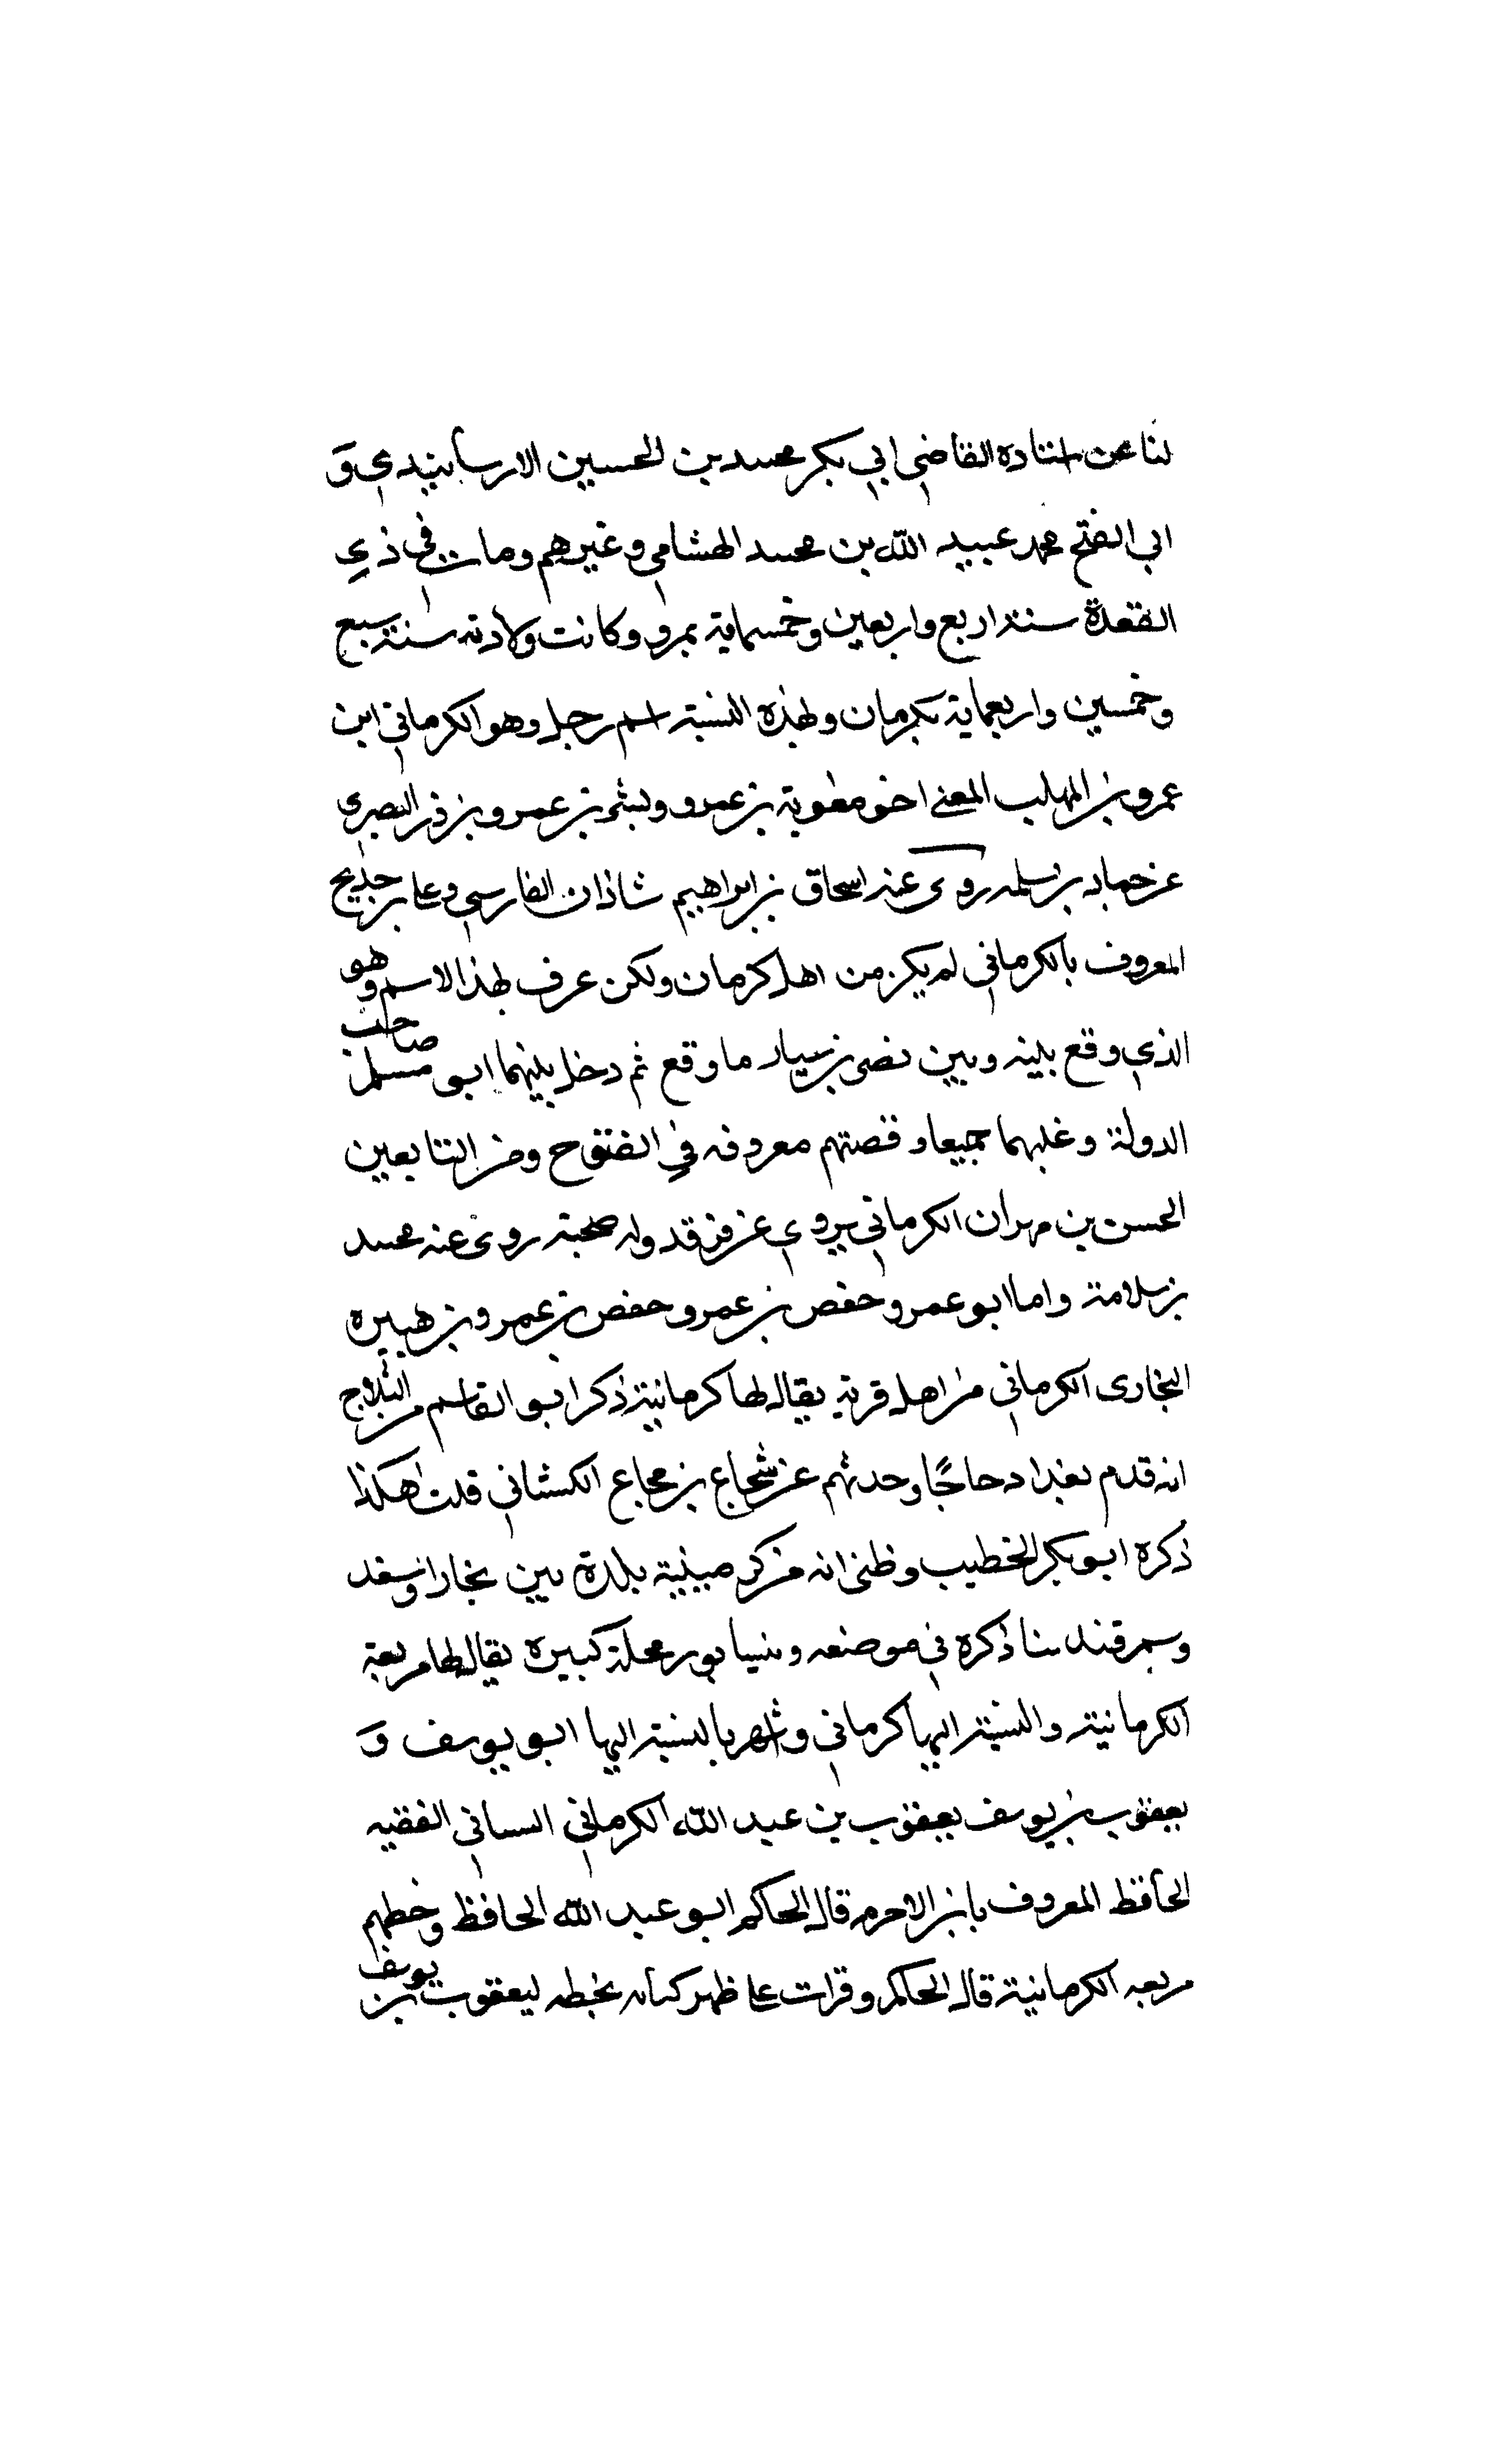 لنا عن استاده القاضي ابي بكر محمد بن الحسين الارسابندي وَ
ابي الفتح محمد عبيد الله بن محمد الهشامي وغيرهم ومات في ذي
القعدة سنة اربع واربعين وخمسماية بمرو وكانت ولادته سنة سبع
وخمسين واربعماية بكرمان ولهذه النسبة اسم رجل وهو الكرماني ابن
عمرو بن المهلب المعنى اخو معوية بن عمرو وبشر بن عمرو بن ذر البصرى
عن حماد بن سلمه روى عنه اسحاق بن ابراهيم شاذان الفارسي وعلى بن جديح
المعروف بالكرماني لم يكن من اهل كرمان ولكن عرف لهذا الاسم وهو
الذي وقع بينه وبين نصر بن سيار ما وقع ثم دخل بينهما ابو مسلم صاحب
الدولة وغلبهما جميعا وقصتهم معروفه في الفتوح ومن التابعين
الحسن بن مهران الكرماني يروي عن فرقد وله صحبة روى عنه محمد
بن سلامة واما ابو عمرو حفص بن عمرو حفص بن عمرو بن هبيره
البخارى الكرماني من اهل قرية يقال لها كرمانية ذكر ابو القاسم بن الثلاج
انه قدم بغداد حاجًا وحدثهم عن شجاع بن مجاع الكشاني قلت هكذا
ذكره ابو بكر الخطيب وظنى انه من كرمينية بلدة بين بخارا وسغد
وسمرقند سنا ذكره في موضعه وبنيسابور محلة كبيرة يقال لها مربعة
الكرمانية والنسبة اليها كرماني وشهر بالنسبة اليها ابو يوسف وَ
يعقوب بن يوسف يعقوب بن عبد الله الكرماني السانى الفقيه
الحافظ المعروف بابن الاخرم قال الحاكم ابو عبد الله الحافظ وخطهم
مربعه الكرمانية قال الحاكم وقرات على ظهر كتابه بخطه ليعقوب بن يوسف